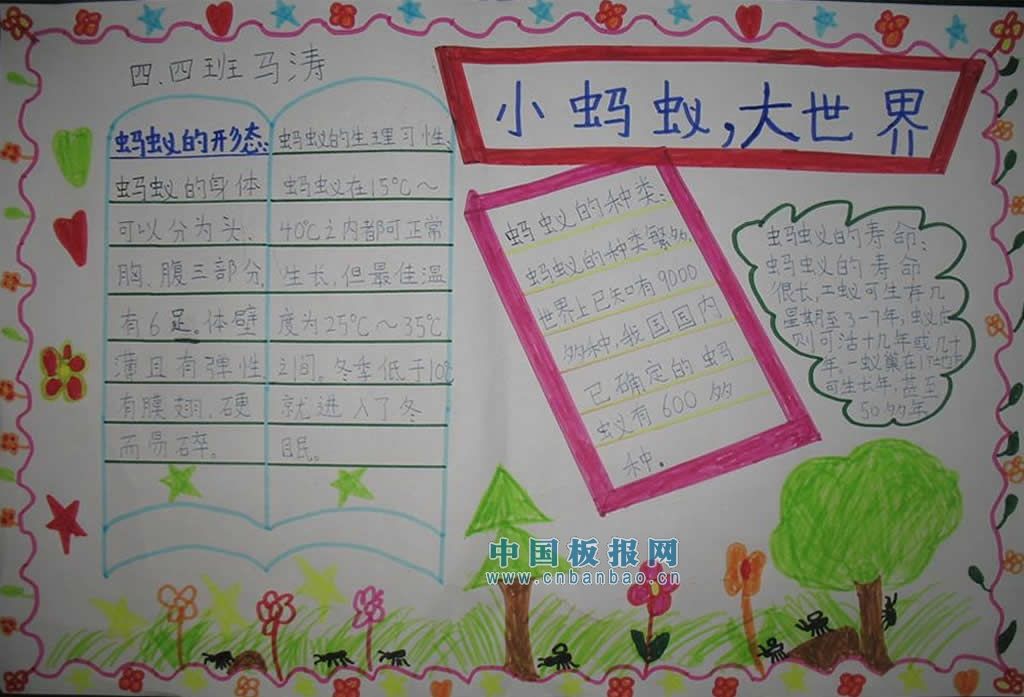 四.四班马涛
小蚂蚁,大世界
蚂蚁的形态:
蚂蚁的身体
可以分为头、
胸、腹三部分,
有6足。体壁
薄且有弹性
有膜翅,硬
而易碎。
蚂蚁的生理习性:
蚂蚁在15℃~
40℃之内都可正常
生长,但最佳温
度为25℃~35℃
之间。冬季低于10℃
就进入了冬
眠。
蚂蚁的种类:
蚂蚁的种类繁多,
世界上已知有9000
多种,我国国内
已确定的蚂
蚁有600多
种.
蚂蚁的寿命:
蚂蚁的寿命
很长,工蚁可生存几
星期至3-7年,蚁后
则可活十几年或几十
年。一蚁巢在1个地方
可生长年,甚至
50多年
中国板报网
www.cnbanbao.cn